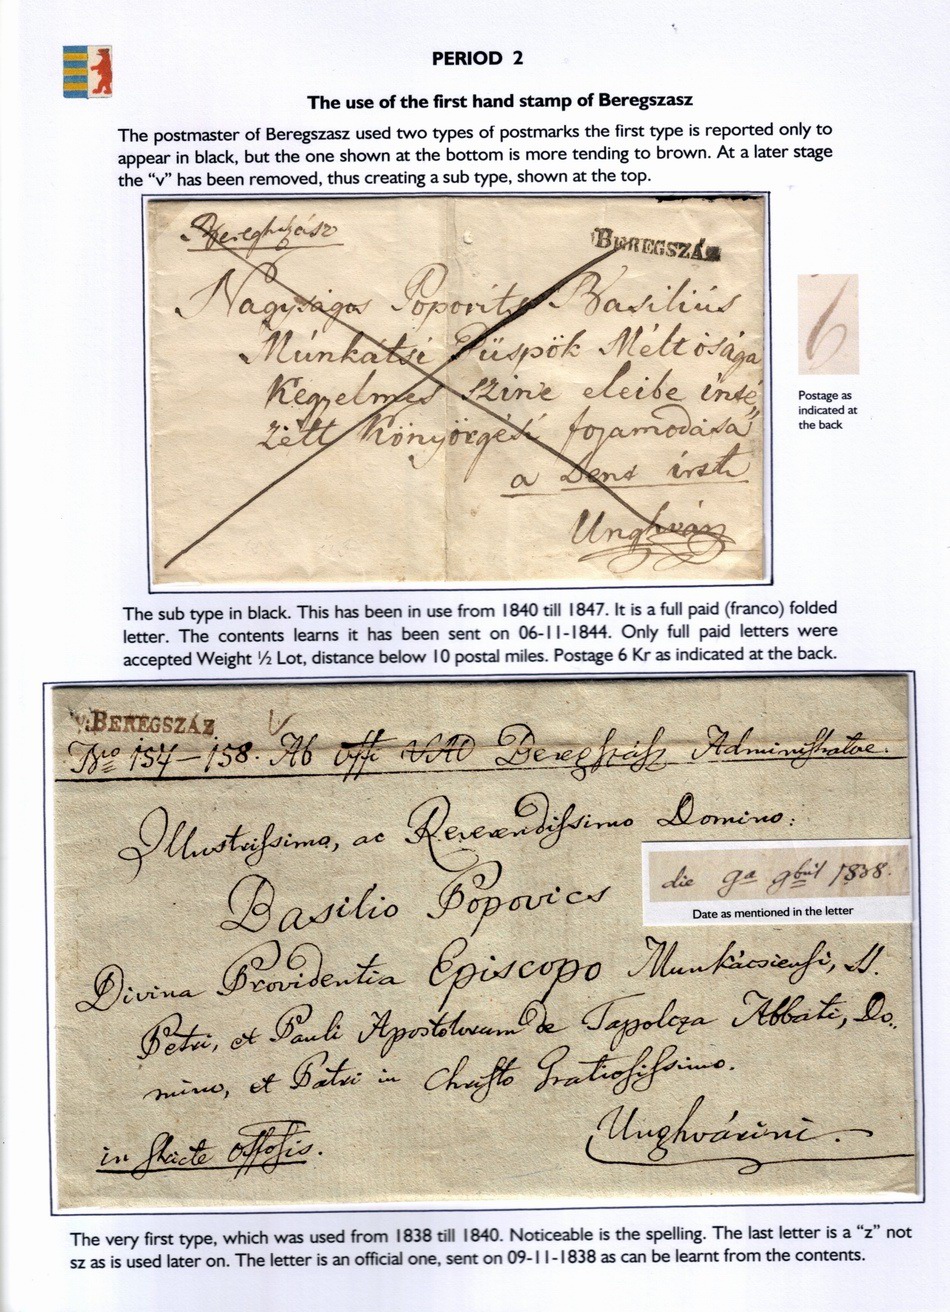 PERIOD 2
The use of the first hand stamp of Beregszasz
The postmaster of Beregszasz used two types of postmarks the first type is reported only to
appear in black, but the one shown at the bottom is more tending to brown. At a later stage
the “v” has been removed, thus creating a sub type, shown at the top.
BEREGSZÁZ
Nagyságos Popovits Basiliús
Múnkátsi Püspök Méltósága
Kegyelmes színe eleibe inté
zett Könyörgési
a
Unghvár
6
Postage as
indicated at
the back
The sub type in black. This has been in use from 1840 till 1847. It is a full paid (franco) folded
letter. The contents learns it has been sent on 06-11-1844. Only full paid letters were
accepted Weight ½ Lot, distance below 10 postal miles. Postage 6 Kr as indicated at the back.
v. BEREGSZÁZ
Nro 157–158. Ab offi Beregszász Administratore.
Illustrissimo, ac Reverendissimo Domino:
Basilio Popovics
die 9a 9bris 1838.
Date as mentioned in the letter
Divina Providentia Episcopo Munkácsiensi, SS.
Petri, et Pauli Apostolorum de Tapolcza Abbati, Do„
mino, et Patri in Christo Gratiosissimo.
Unghvárini.
The very first type, which was used from 1838 till 1840. Noticeable is the spelling. The last letter is a “z” not
sz as is used later on. The letter is an official one, sent on 09-11-1838 as can be learnt from the contents.